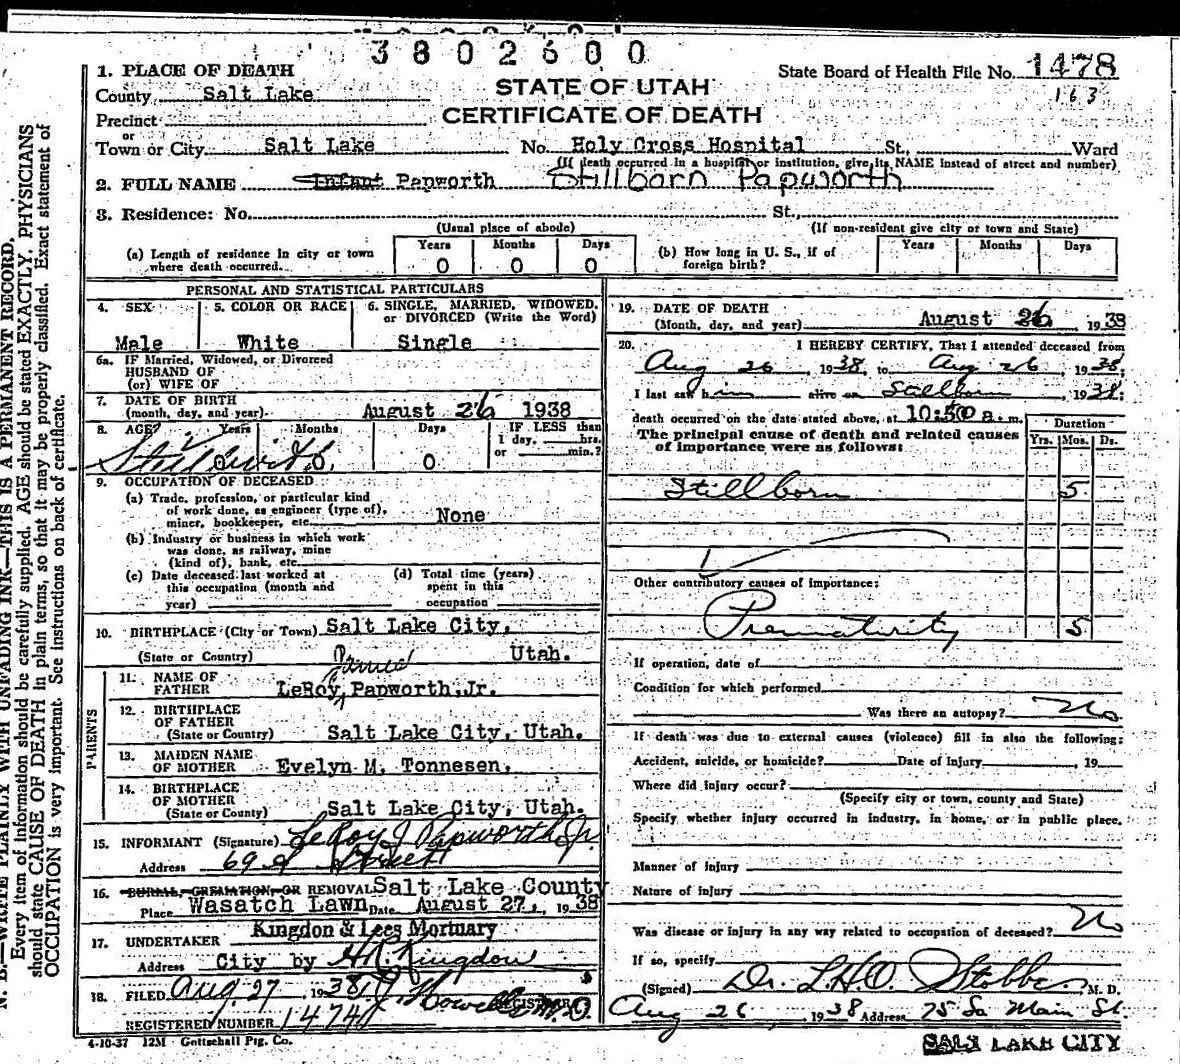 3802600
1. PLACE OF DEATH
State Board of Health File No. 1478
163
County Salt Lake
STATE OF UTAH
Precinct
CERTIFICATE OF DEATH
or
Town or City Salt Lake No. Holy Cross Hospital St., Ward
(If death occurred in a hospital or institution, give its NAME instead of street and number)
2. FULL NAME Infant Papworth Stillborn Papworth
3. Residence: No. St.,
(Usual place of abode) (If non-resident give city or town and State)
(a) Length of residence in city or town where death occurred. Years 0 Months 0 Days 0
(b) How long in U. S., if of foreign birth? Years Months Days
PERSONAL AND STATISTICAL PARTICULARS
4. SEX 5. COLOR OR RACE 6. SINGLE, MARRIED, WIDOWED, or DIVORCED (Write the Word)
Male White Single
6a. IF Married, Widowed, or Divorced
HUSBAND OF
(or) WIFE OF
7. DATE OF BIRTH
(month, day, and year) August 26 1938
8. AGE? Years Months Days IF LESS than
1 day, hrs.
or min.?
0
9. OCCUPATION OF DECEASED
(a) Trade, profession, or particular kind
of work done, as engineer (type of),
miner, bookkeeper, etc. None
(b) Industry or business in which work
was done, as railway, mine
(kind of), bank, etc.
(c) Date deceased last worked at
this occupation (month and
year)
(d) Total time (years)
spent in this
occupation
10. BIRTHPLACE (City or Town) Salt Lake City,
(State or Country) Utah.
PARENTS
James
11. NAME OF
FATHER LeRoy Papworth, Jr.
12. BIRTHPLACE
OF FATHER
(State or Country) Salt Lake City, Utah.
13. MAIDEN NAME
OF MOTHER Evelyn M. Tonnesen,
14. BIRTHPLACE
OF MOTHER
(State or County) Salt Lake City, Utah.
15. INFORMANT (Signature) LeRoy J Papworth Jr.
Address 69
16. BURIAL, CREMATION, OR REMOVAL Salt Lake County
Place Wasatch Lawn Date August 27, 1938
Kingdon & Lees Mortuary
17. UNDERTAKER
Address City by H.R. Kingdon
18. FILED Aug. 27 1938 REGISTRAR
REGISTERED NUMBER 1474
4-10-37 12M Gottschall Ptg. Co.
19. DATE OF DEATH
(Month, day, and year) August 26, 1938
20. I HEREBY CERTIFY, That I attended deceased from
Aug 26, 1938, to Aug 26, 1938;
I last saw him alive on Stillborn, 1938;
death occurred on the date stated above, at 10:30 a. m.
The principal cause of death and related causes
of importance were as follows:
Duration
Yrs. Mos. Ds.
Stillborn 5
Other contributory causes of importance:
Prematurity 5
If operation, date of
Condition for which performed
Was there an autopsy? No
If death was due to external causes (violence) fill in also the following:
Accident, suicide, or homicide? Date of injury , 19
Where did injury occur?
(Specify city or town, county and State)
Specify whether injury occurred in industry, in home, or in public place.
Manner of injury
Nature of injury
Was disease or injury in any way related to occupation of deceased? No
If so, specify
(Signed) Dr. L.H.O. Stobbe, M. D.
Aug 26, 1938 Address 75 So Main St.
SALT LAKE CITY
N. B.—WRITE PLAINLY WITH UNFADING INK—THIS IS A PERMANENT RECORD.
Every item of information should be carefully supplied. AGE should be stated EXACTLY. PHYSICIANS
should state CAUSE OF DEATH in plain terms, so that it may be properly classified. Exact statement of
OCCUPATION is very important. See instructions on back of certificate.